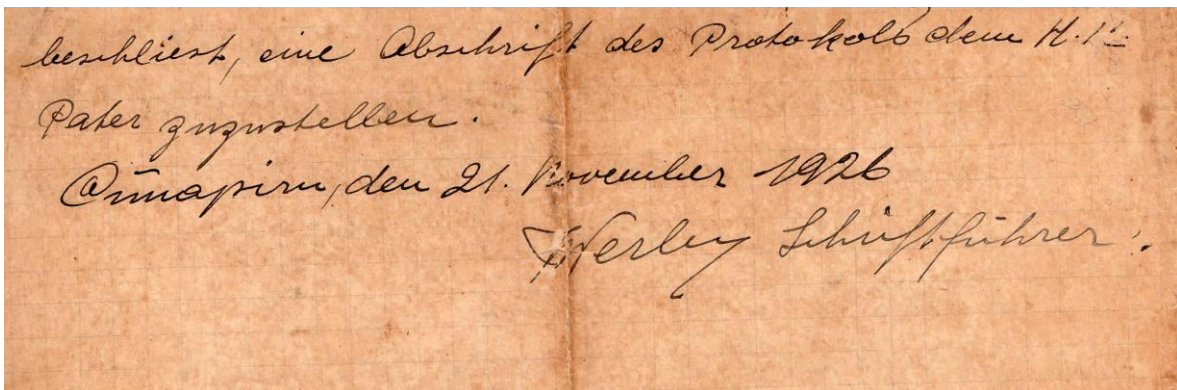 beschliest, eine Abschrift des Protokols dem H. H.
Pater zuzustellen.
den 21. November 1926
Werley Schriftführer.